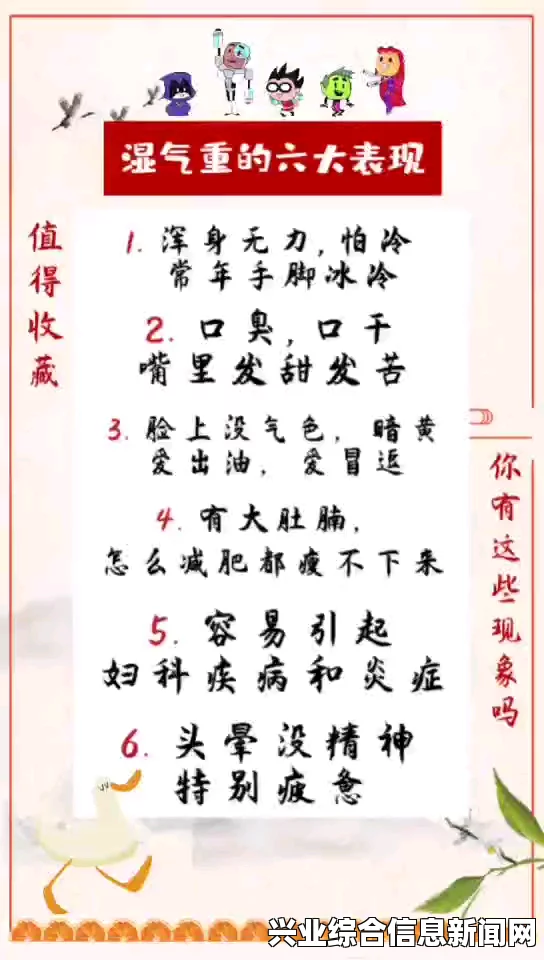 湿气重的六大表现
值得收藏
1. 浑身无力,怕冷
常年手脚冰冷
2. 口臭,口干
嘴里发甜发苦
3. 脸上没气色,暗黄
爱出油,爱冒逗
4. 有大肚腩,
怎么减肥都瘦不下来
5. 容易引起
妇科疾病和炎症
6. 头晕没精神
特别疲惫
你有这些现象吗
兴业综合信息新闻网